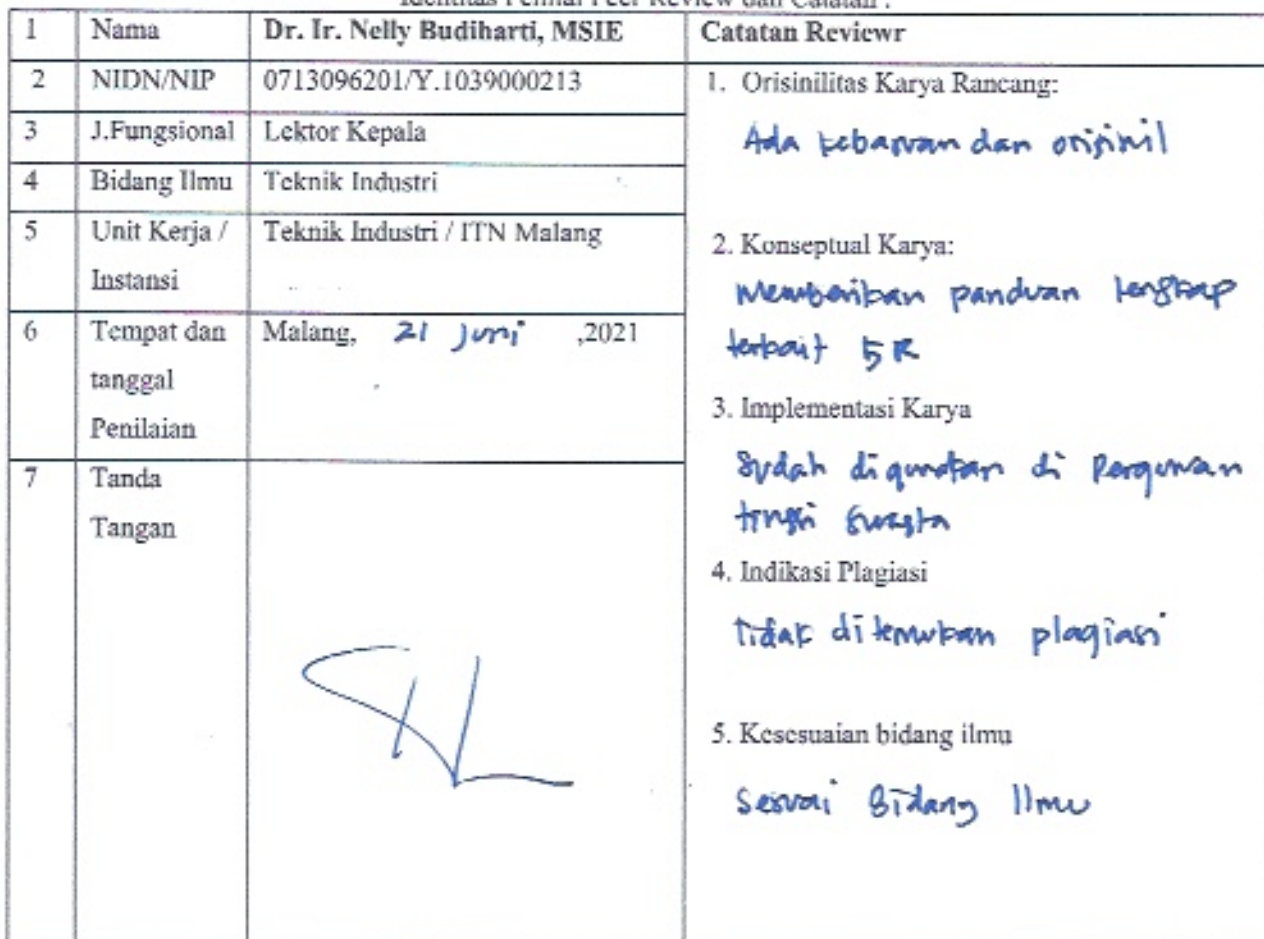 Identitas Penilai Peer Review dan Catatan :
1 Nama Dr. Ir. Nelly Budiharti, MSIE
2 NIDN/NIP 0713096201/Y.1039000213
3 J.Fungsional Lektor Kepala
4 Bidang Ilmu Teknik Industri
5 Unit Kerja / Teknik Industri / ITN Malang
Instansi
6 Tempat dan Malang, 21 Juni ,2021
tanggal
Penilaian
7 Tanda
Tangan
Catatan Reviewr
1. Orisinilitas Karya Rancang:
Ada kebaruan dan orisinil
2. Konseptual Karya:
Memberikan panduan lengkap
terkait 5R
3. Implementasi Karya
Sudah digunakan di Perguruan
tinggi Swasta
4. Indikasi Plagiasi
Tidak ditemukan plagiasi
5. Kesesuaian bidang ilmu
Sesuai Bidang Ilmu